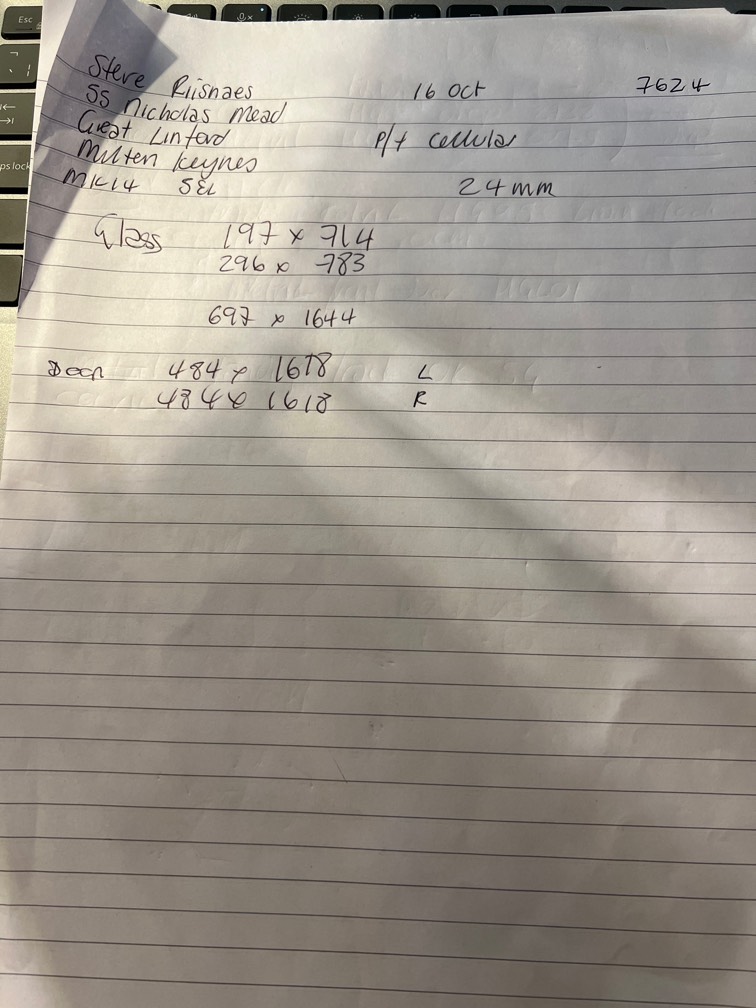 Steve Riisnaes 16 Oct 7624
55 Nicholas Mead
Great Linford P/f Cellular
Milten Keynes
MK14 5EL 24mm
Glass 197 x 714
296 x 783
697 x 1644
Door 484 x 1618 L
484 x 1618 R